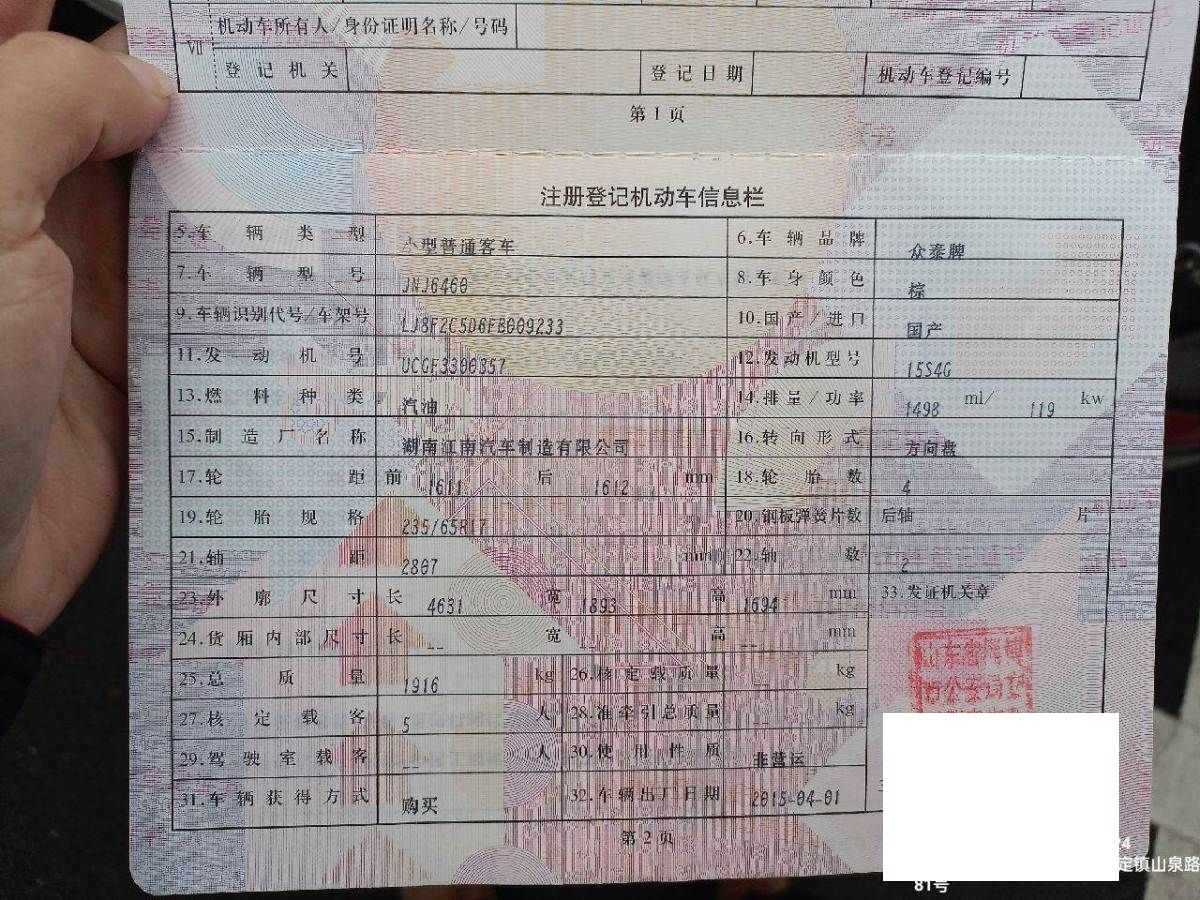 Ⅶ 机动车所有人/身份证明名称/号码
登记机关 登记日期 机动车登记编号
第1页
注册登记机动车信息栏
5.车辆类型 小型普通客车 6.车辆品牌 众泰牌
7.车辆型号 JNJ6460 8.车身颜色 棕
9.车辆识别代号/车架号 LJ8F2C5D6FB009233 10.国产/进口 国产
11.发动机号 UCGF3300357 12.发动机型号 15S4G
13.燃料种类 汽油 14.排量/功率 1498 ml/ 119 kw
15.制造厂名称 湖南江南汽车制造有限公司 16.转向形式 方向盘
17.轮距 前 1611 后 1612 mm 18.轮胎数 4
19.轮胎规格 235/65R17 20.钢板弹簧片数 后轴 片
21.轴距 2807 mm 22.轴数 2
23.外廓尺寸 长 4631 宽 1893 高 1694 mm 33.发证机关章
24.货厢内部尺寸 长 -- 宽 -- 高 -- mm
25.总质量 1916 kg 26.核定载质量 -- kg
27.核定载客 5 人 28.准牵引总质量 -- kg
29.驾驶室载客 -- 人 30.使用性质 非营运
31.车辆获得方式 购买 32.车辆出厂日期 2015-04-01
山东省
市公安局
第2页
4
定镇山泉路
81号